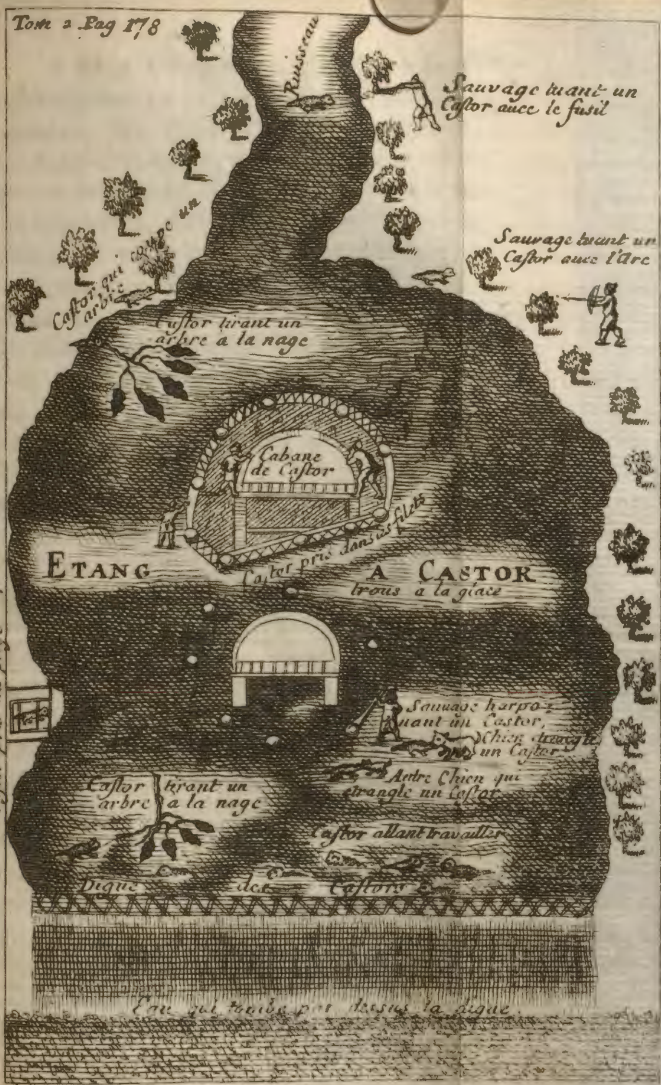 Tom 2 Pag 178
Ruisseau
Sauvage tuant un
Castor avec le fusil
Sauvage tuant un
Castor avec l'Arc
Castor qui coupe un
arbre
Castor tirant un
arbre a la nage
Cabane
de Castor
Castor pris dans les filets
ETANG A CASTOR
trous a la glace
Sauvage harpo=
nant un Castor,
Chien
un Castor
Autre Chien qui
etrangle un Castor
Castor tirant un
arbre a la nage
Castor allant travailler
Digue des Castors
Eau qui tombe par dessus la digue